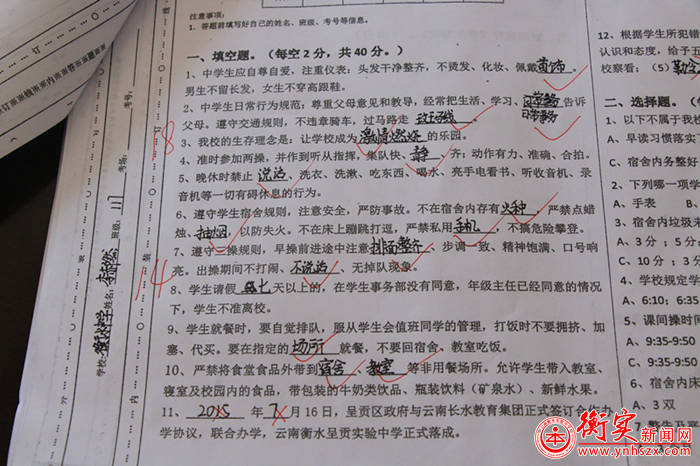 注意事项：
1、答题前填写好自己的姓名、班级、考号等信息。
一、填空题。（每空 2 分，共 40 分。）
1、中学生应自尊自爱，注重仪表：头发干净整齐，不烫发、化妆、佩戴首饰。
男生不留长发，女生不穿高跟鞋。
2、中学生日常行为规范：尊重父母意见和教导，经常把生活、学习、告诉
父母。遵守交通规则，不违章骑车，过马路走
3、我校的生存理念是：让学校成为激情燃烧的乐园。
4、准时参加两操，并作到听从指挥，集队快、静、齐；动作有力、准确、合拍。
5、晚休时禁止说话、洗衣、洗漱、吃东西、喝水、亮手电看书、听收音机、录
音机等一切有碍休息的行为。
6、遵守学生宿舍规则，注意安全，严防事故。不在宿舍内存有火种，严禁点蜡
烛、抽烟，以防失火。不在床上蹦跳打逗，严禁私用手机，不搞危险攀登。
7、遵守三操规则，早操前进途中注意排面整齐、步调一致、精神饱满、口号响
亮。出操期间不打闹、不说话、无掉队现象。
8、学生请假七天以上的，在学生事务部没有同意，年级主任已经同意的情况
下，学生不准离校。
9、学生就餐时，要自觉排队，服从学生会值班同学的管理，打饭时不要拥挤、加
塞、代买。要在指定的场所就餐，不要回宿舍、教室吃饭。
10、严禁将食堂食品外带到宿舍、教室等非用餐场所。允许学生带入教室、
寝室及校园内的食品，带包装的牛奶类饮品、瓶装饮料（矿泉水）、新鲜水果。
11、2015 年 7 月 16 日，呈贡区政府与云南长水教育集团正式签订合作办
学协议，联合办学，云南衡水呈贡实验中学正式落成。
18
14
学校： 姓名： 班级：111 考场： 考号：
装 订 线
12、根据学生所犯错
认识和态度，给予五
校察看；（5）勒令
二、选择题。（
1、以下不属于我校
A、早读习惯落实
C、宿舍内务整
2、下列哪一项学
A、手表 B、
3、宿舍内垃圾未
A、3 分；5 分
C、10 分；3 分
4、学校规定学
A、6:10；6:35
5、课间操时间
A、9:35-9:50
C、9:35-9:50
6、宿舍内床
A、3 双
衡实新闻网
www.ynhszx.com